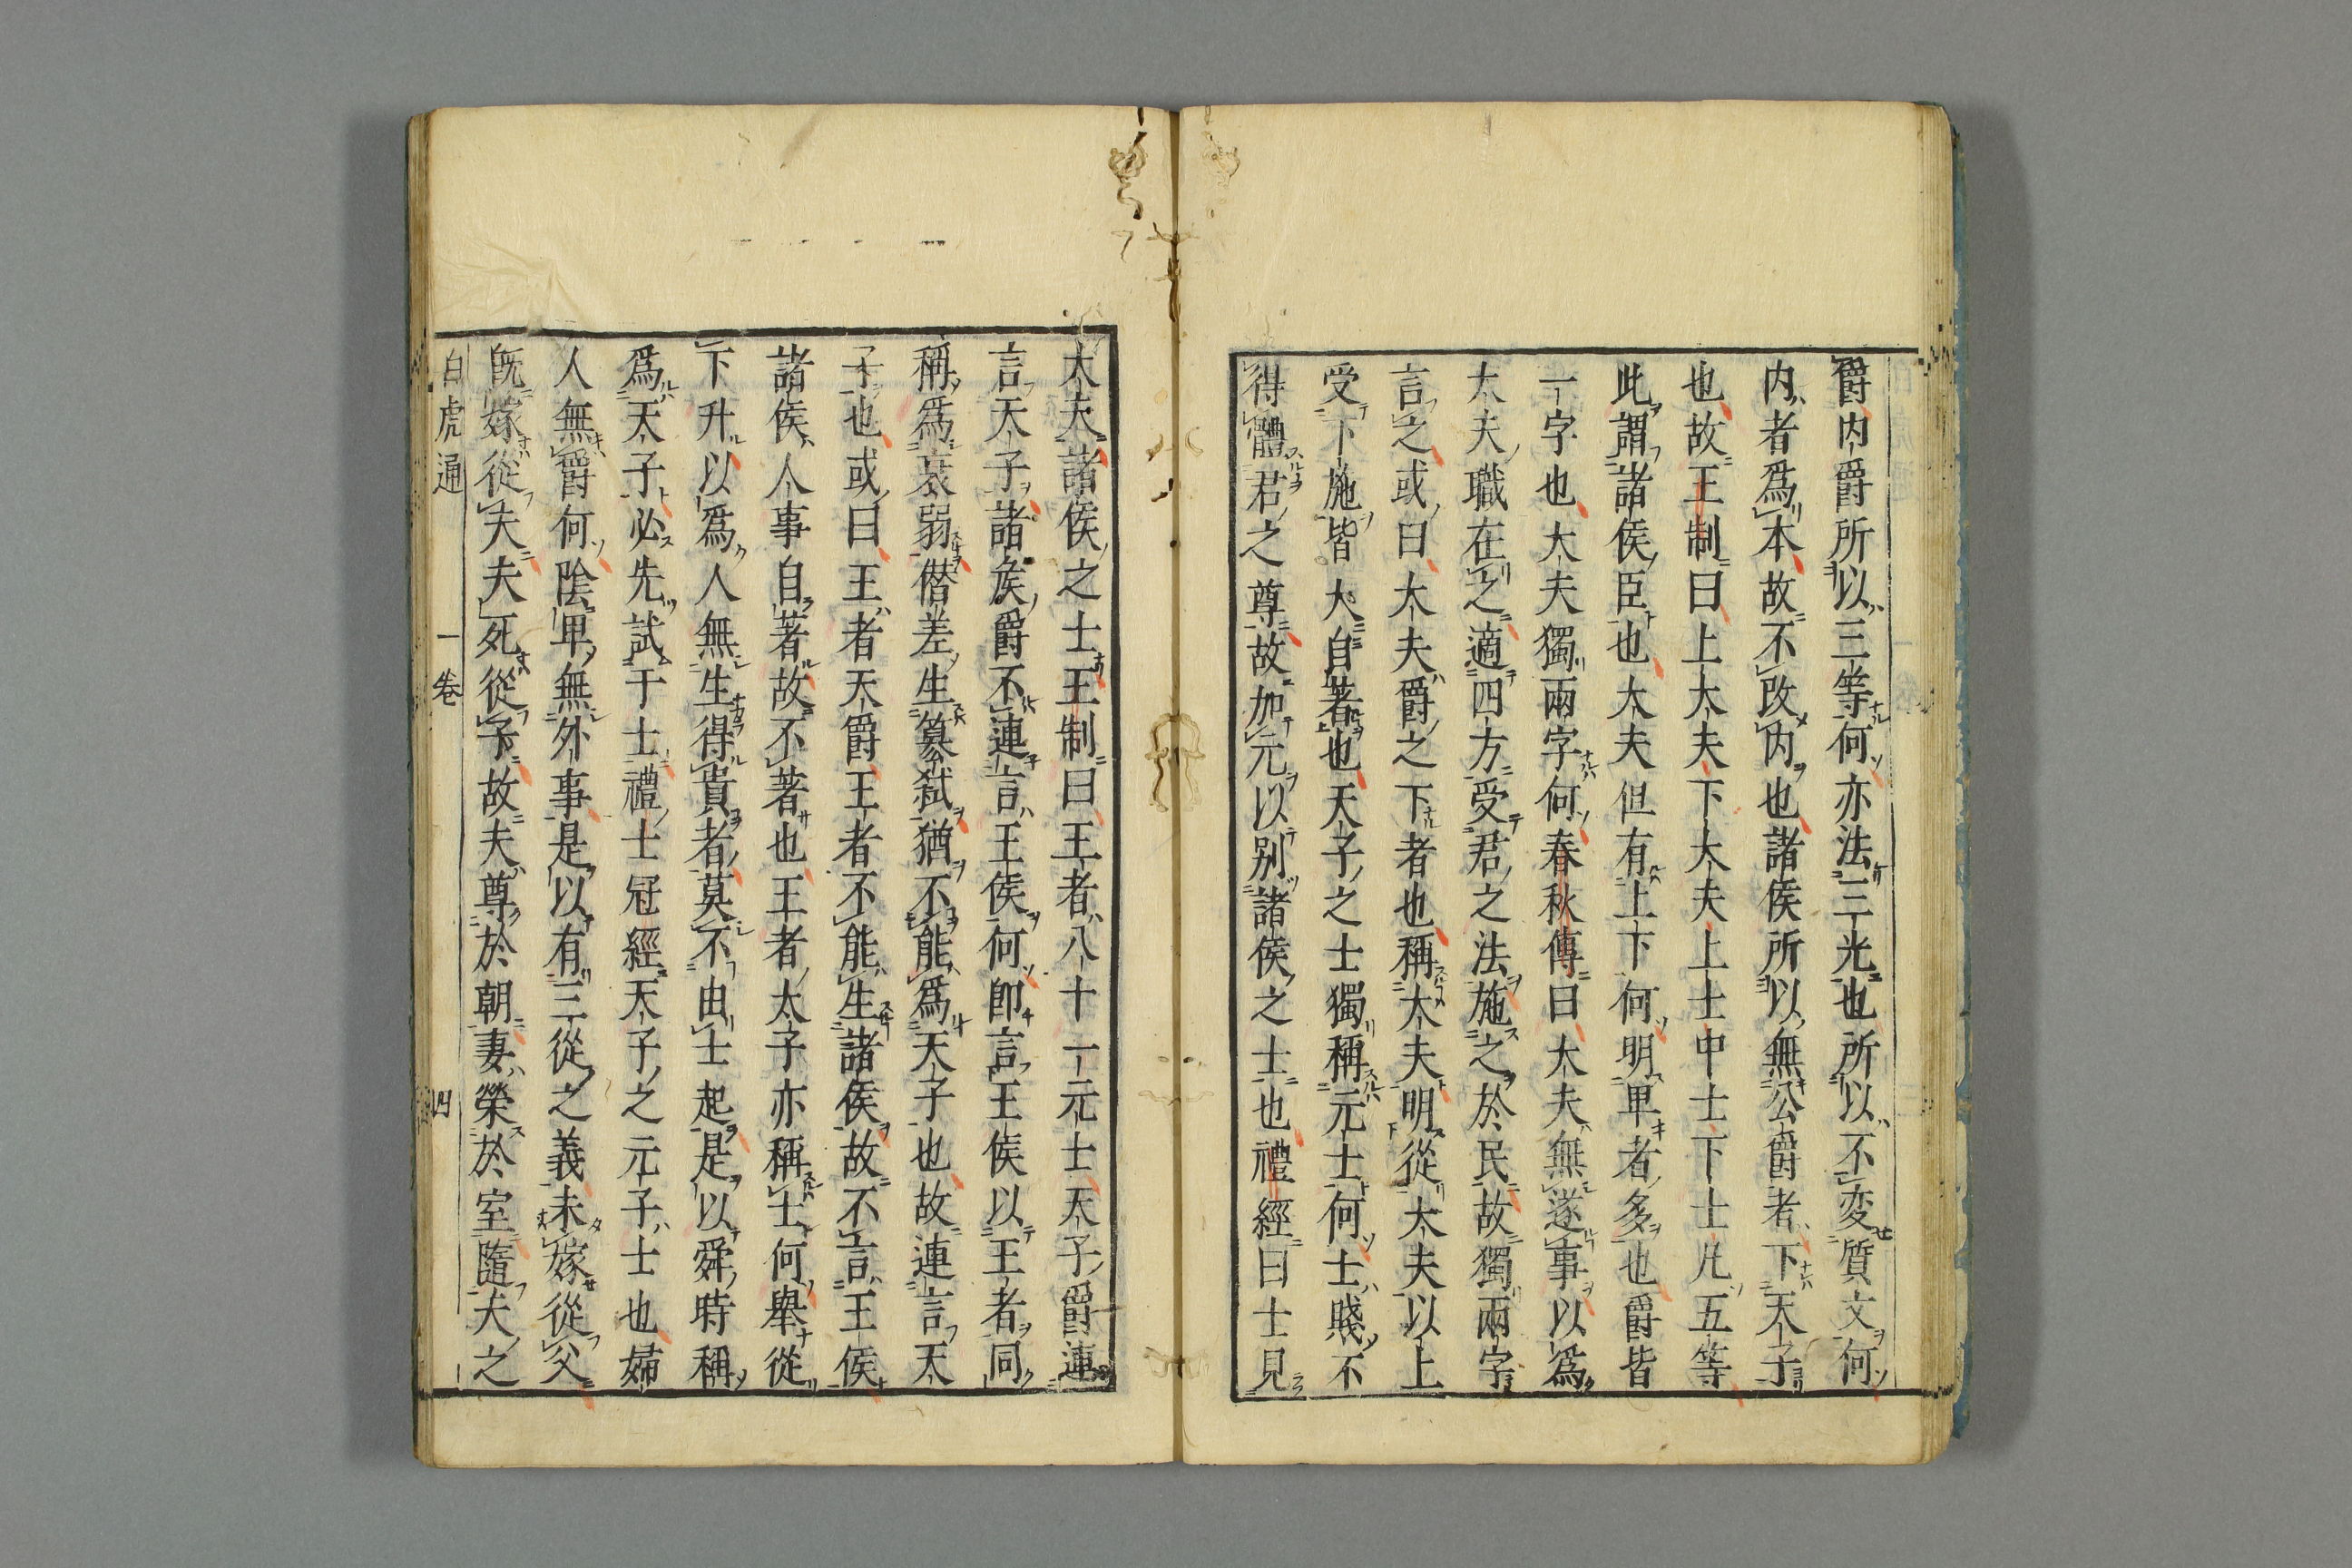 爵内爵所以三等何亦法三光也所以不変質文何
内者爲本故不改内也諸侯所以無公爵者下天子
也故王制曰上大夫下大夫上士中士下士凡五等
此謂諸侯臣也大夫但有上下何明卑者多也爵皆
一字也大夫獨兩字何春秋傳曰大夫無遂事以爲
大夫職在之適四方受君之法施之於民故獨兩字
言之或曰大夫爵之下者也稱大夫明從大夫以上
受下施皆大自著也天子之士獨稱元士何士賤不
得體君之尊故加元以別諸侯之士也禮經曰士見
大夫諸侯之士王制曰王者八十一元士天子爵連
言天子諸侯爵不連言王侯何即言王侯以王者同
稱爲衰弱僭差生篡弑猶不能爲天子也故連言天
子也或曰王者天爵王者不能生諸侯故不言王侯
諸侯人事自著故不著也王者太子亦稱士何舉從
下升以爲人無生得貴者莫不由士起是以舜時稱
爲天子必先試于士禮士冠經天子之元子士也婦
人無爵何陰卑無外事是以有三從之義未嫁從父
既嫁從夫夫死從子故夫尊於朝妻榮於室隨夫之
白虎通 一卷 四